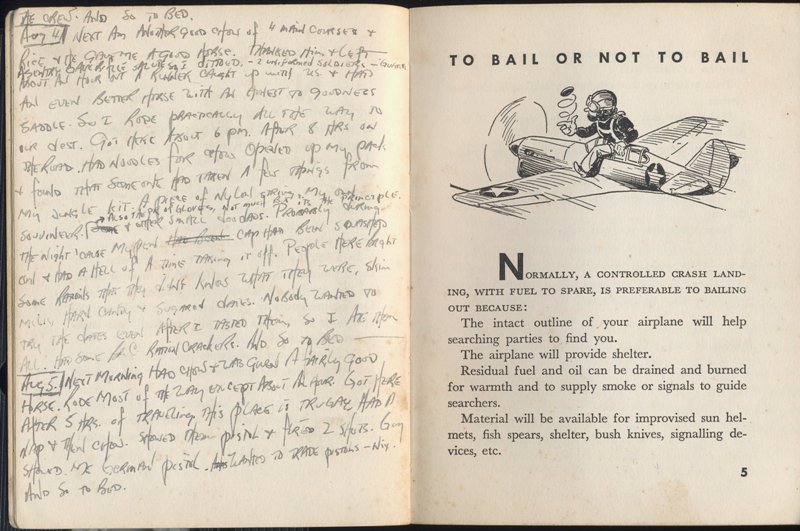 THE CREW. AND SO TO BED.
Aug 4 NEXT AM ANOTHER GOOD CHOW OF 4 MAIN COURSES &
RICE & HE GAVE ME A GOOD HORSE. THANKED HIM & LEFT
SO I DITTOED. - 2 UNIFORMED SOLDIERS -
ABOUT AN HOUR OUT A RUNNER CAUGHT UP WITH US & HAD
AN EVEN BETTER HORSE WITH AN HONEST TO GOODNESS
SADDLE. SO I RODE PRACTICALLY ALL THE WAY TO
OUR DEST. GOT HERE ABOUT 6 PM. AFTER 8 HRS ON
THE ROAD. HAD NOODLES FOR CHOW. OPENED UP MY PACK
& FOUND THAT SOMEONE HAD TAKEN A FEW THINGS FROM
MY JUNGLE KIT. A PIECE OF NYLON STRING, MY OWN
ALSO THE PR OF GLOVES, NOT MUCH BUT ITS THE PRINCIPLE.
SOUVINEER. & OTHER SMALL DOODADS. PROBABLY DURING
THE NIGHT 'CAUSE MY PEN HAD BEEN CAP HAD BEEN SQUASHED
ON & HAD A HELL OF A TIME TAKING IT OFF. PEOPLE HERE BROUGHT
SOME RATIONS THAT THEY DIDN'T KNOW WHAT THEY WERE, SKIM
MILK, HARD CANDY & SUGARED DATES. NOBODY WANTED TO
TRY THE DATES EVEN AFTER I TASTED THEM, SO I ATE THEM
ALL. HAD SOME RATION CRACKERS. AND SO TO BED
Aug 5 NEXT MORNING HAD CHOW & WAS GIVEN A FAIRLY GOOD
HORSE. RODE MOST OF THE WAY EXCEPT ABOUT AN HOUR. GOT HERE
AFTER 5 HRS. OF TRAVELING. THIS PLACE IS HAD A
NAP & THEN CHOW. SHOWED THEM PISTOL & FIRED 2 SHOTS. GUY
SHOWED ME GERMAN PISTOL. WANTED TO TRADE PISTOLS - NIX.
AND SO TO BED.
TO BAIL OR NOT TO BAIL
NORMALLY, A CONTROLLED CRASH LAND-
ING, WITH FUEL TO SPARE, IS PREFERABLE TO BAILING
OUT BECAUSE:
The intact outline of your airplane will help
searching parties to find you.
The airplane will provide shelter.
Residual fuel and oil can be drained and burned
for warmth and to supply smoke or signals to guide
searchers.
Material will be available for improvised sun hel-
mets, fish spears, shelter, bush knives, signalling de-
vices, etc.
5